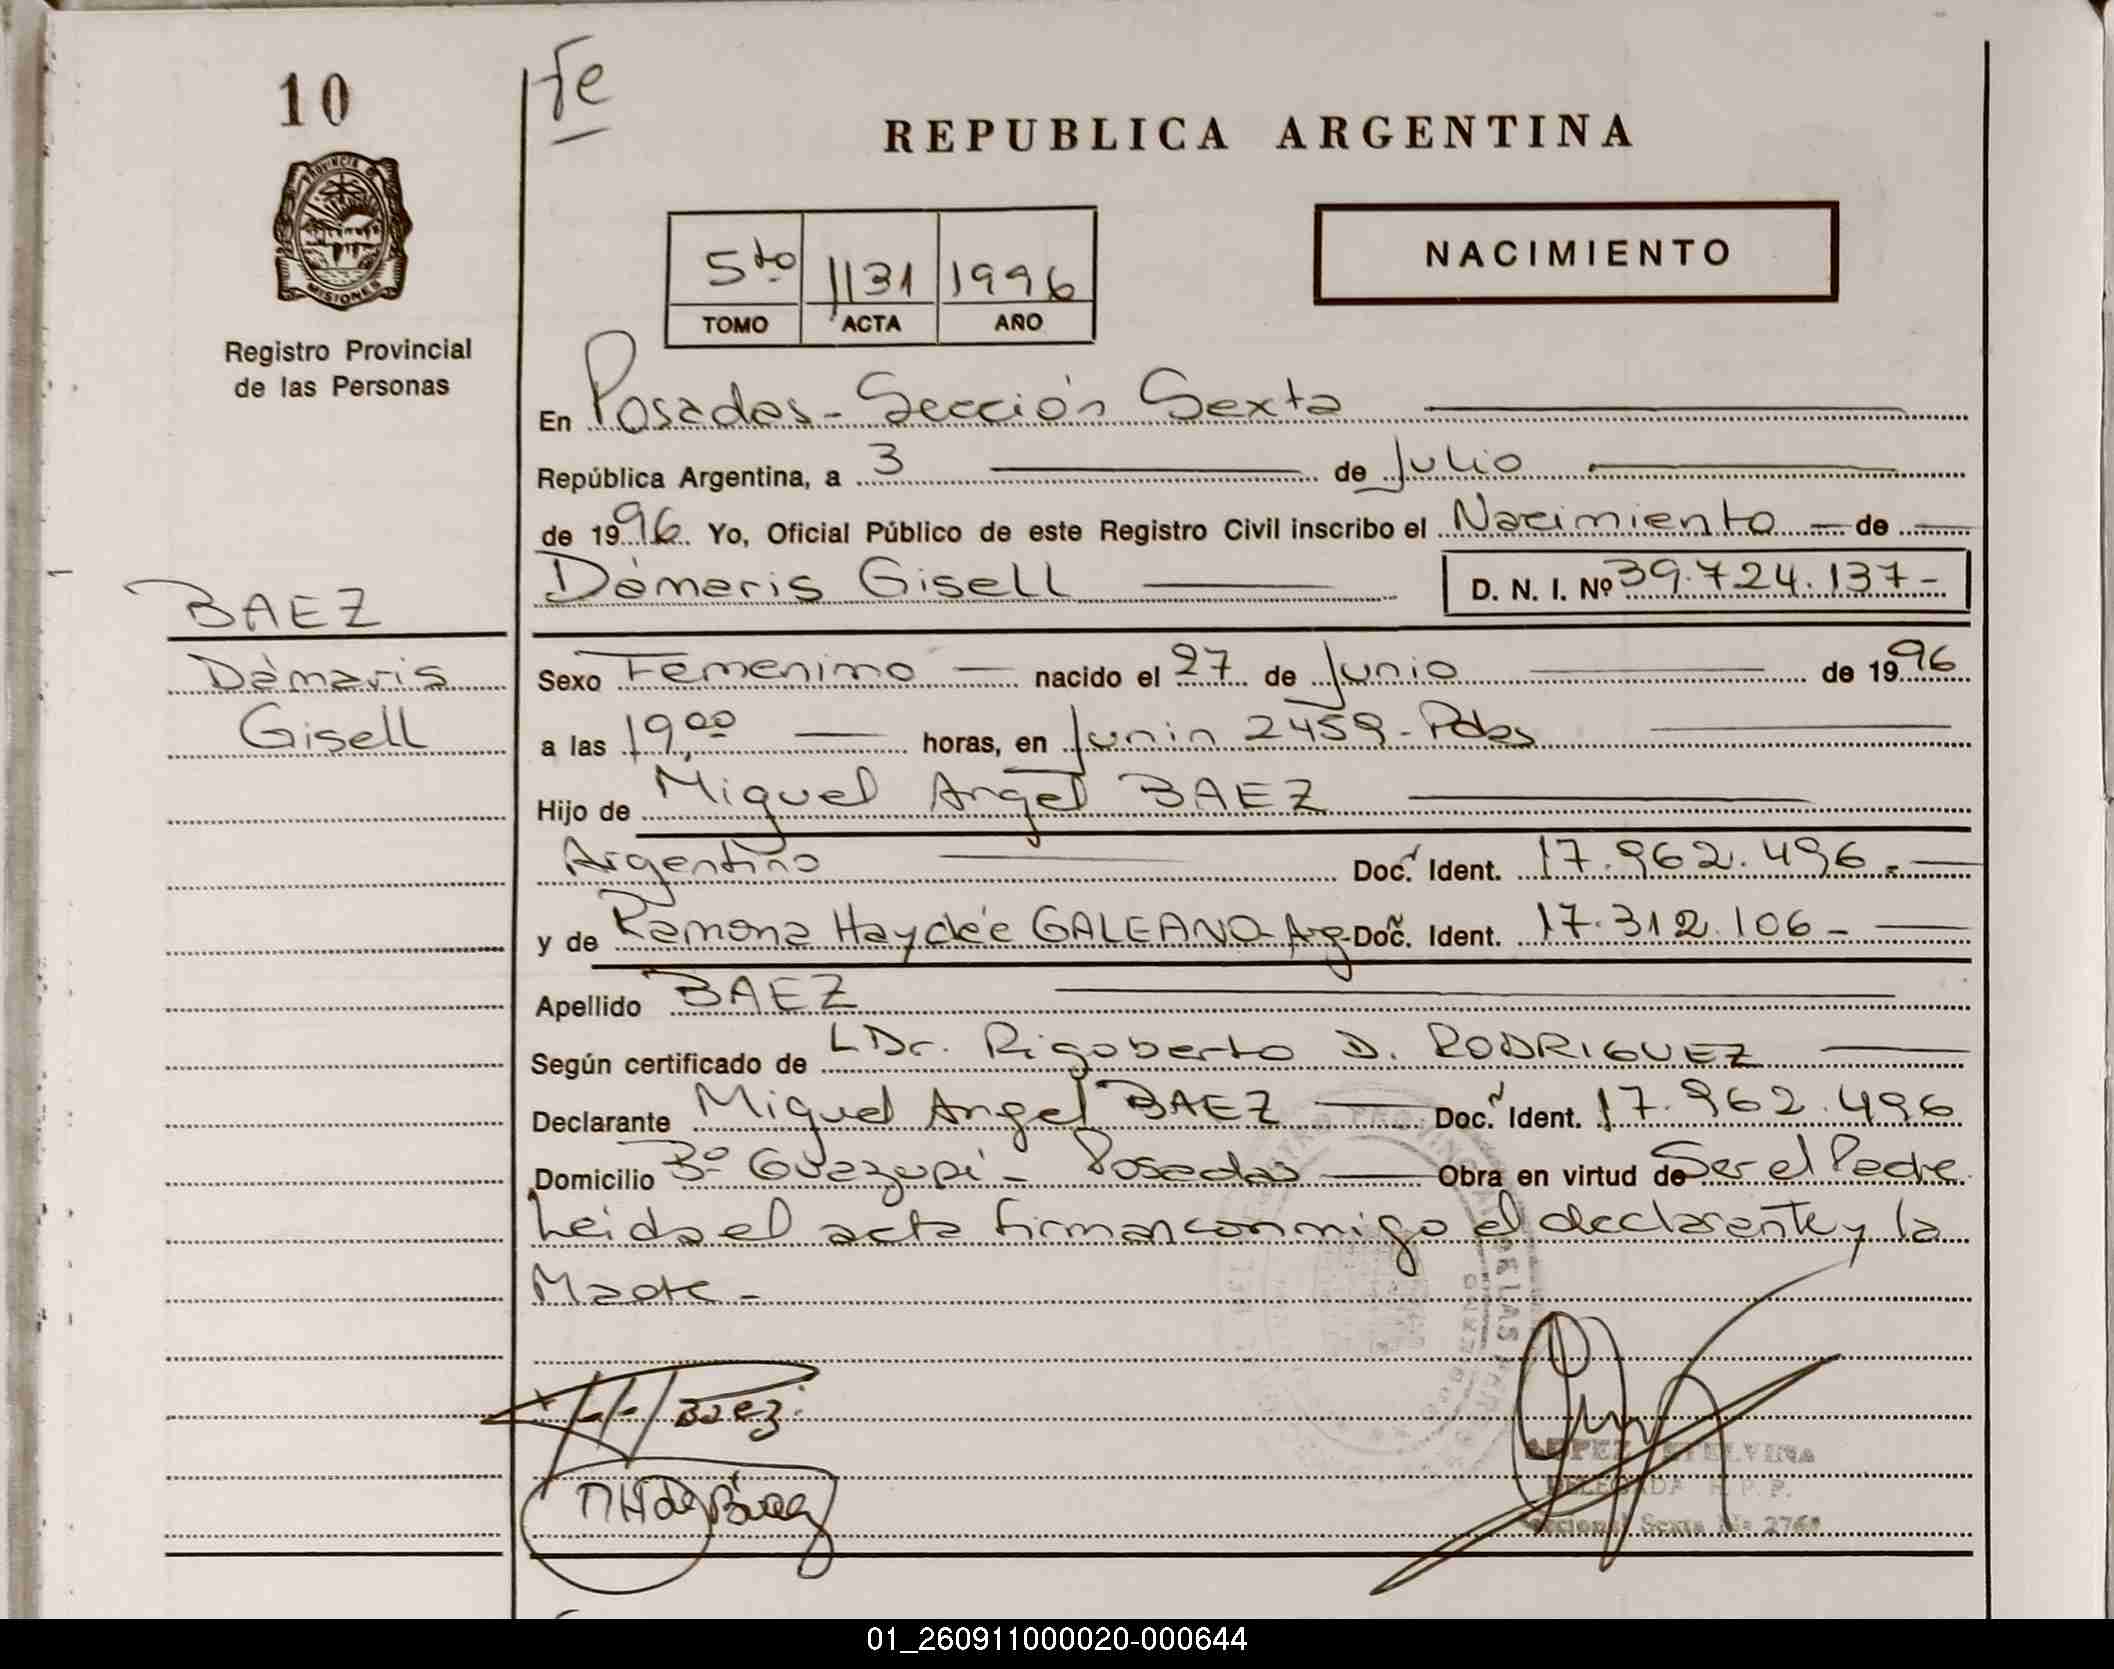 10
Fe
REPUBLICA ARGENTINA
PROVINCIA DE
MISIONES
Registro Provincial
de las Personas
5to 1131 1996
TOMO ACTA AÑO
NACIMIENTO
En Posadas - Sección Sexta
República Argentina, a 3 de Julio
de 1996. Yo, Oficial Público de este Registro Civil inscribo el Nacimiento de
Dámaris Gisell D. N. I. Nº 39.724.137-
BAEZ
Dámaris
Gisell
Sexo Femenino nacido el 27 de Junio de 1996
a las 19,00 horas, en Junin 2459 - Pdas
Hijo de Miguel Angel BAEZ
Argentino Doc. Ident. 17.962.496.-
y de Ramona Haydée GALEANO - Arg - Doc. Ident. 17.312.106 -
Apellido BAEZ
Según certificado de LDr. Rigoberto D. RODRIGUEZ
Declarante Miguel Angel BAEZ Doc. Ident. 17.962.496
Domicilio Bº Guazupi - Posadas Obra en virtud de Ser el Padre.
Leida el acta firman conmigo el declarante y la
Madre -
Baez
LOPEZ ETELVINA
DELEGADA R. P. P.
Seccional Sexta
01_260911000020-000644